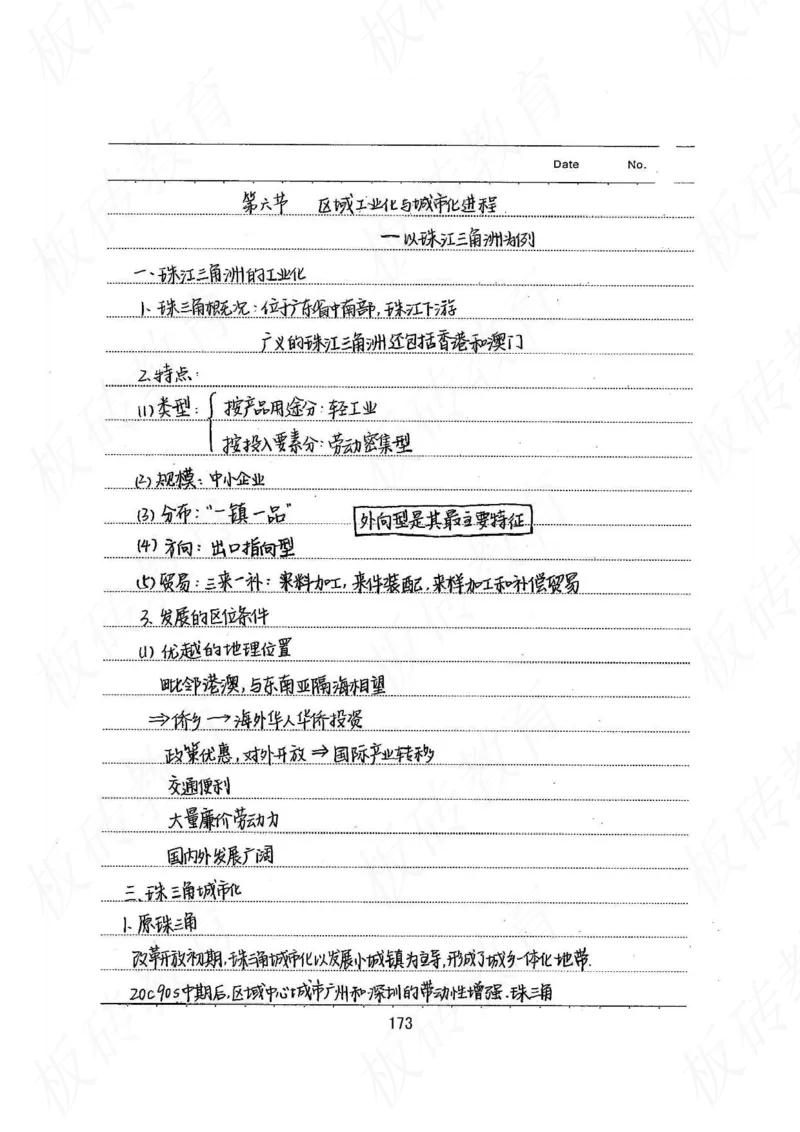 Date No.
第六节 区域工业化与城市化进程
—以珠江三角洲为例
一、珠江三角洲的工业化
1、珠三角概况：位于广东省中南部，珠江下游
广义的珠江三角洲还包括香港和澳门
2.特点：
(1)类型：{ 按产品用途分：轻工业
按投入要素分：劳动密集型
(2)规模：中小企业
(3)分布：“一镇一品” 外向型是其最主要特征
(4)方向：出口指向型
(5)贸易：三来一补：来料加工，来件装配，来样加工和补偿贸易
3、发展的区位条件
(1)优越的地理位置
毗邻港澳，与东南亚隔海相望
⇒侨乡→海外华人华侨投资
政策优惠，对外开放⇒国际产业转移
交通便利
大量廉价劳动力
国内外发展广阔
三、珠三角城市化
1、原珠三角
改革开放初期，珠三角城市化以发展小城镇为主导，形成了城乡一体化地带.
20c90s中期后，区域中心城市广州和深圳的带动性增强.珠三角
173
板砖教育